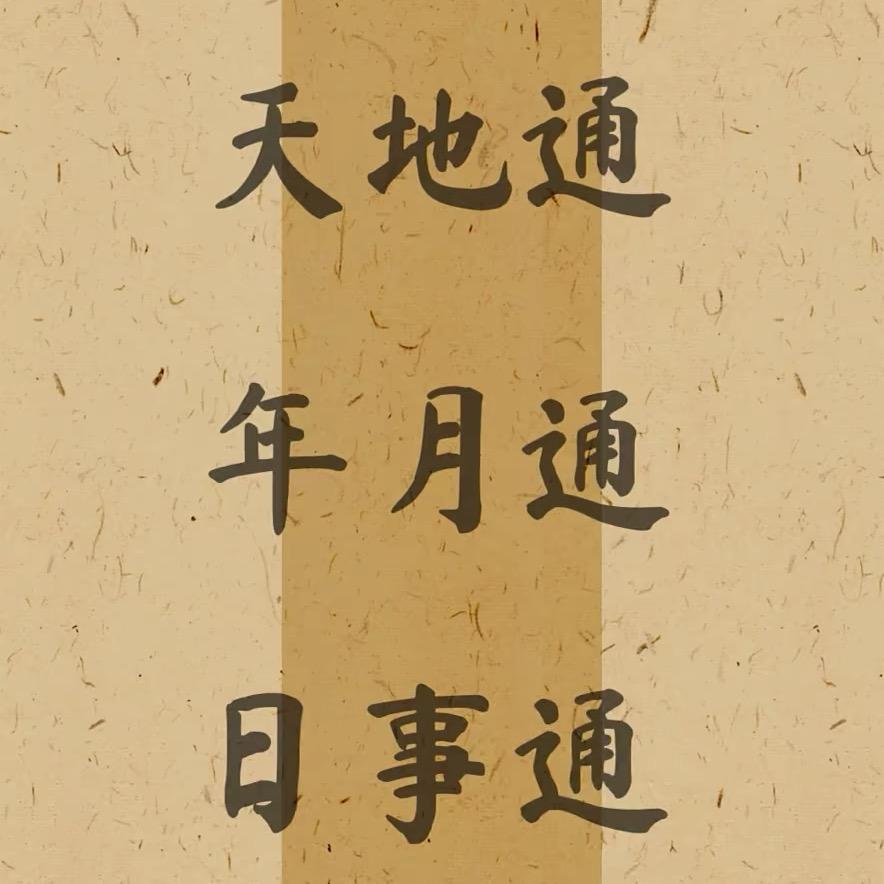 天地通
年月通
日事通